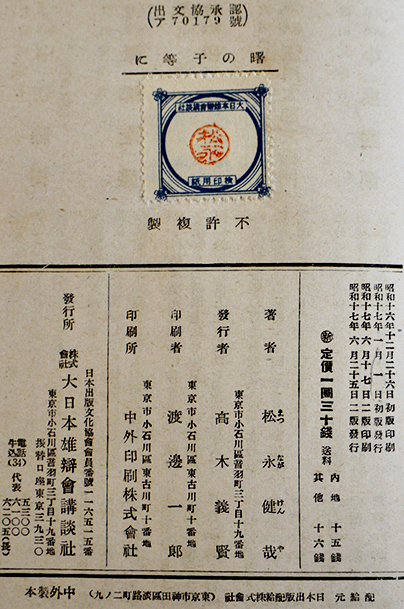 (出文協承認
ア70179號)
曙の子等に
大日本雄辯會講談社
松永
檢印用紙
不許複製
昭和十六年十二月二十六日初版印刷
昭和十七年一月一日初版發行
昭和十七年六月十七日二版印刷
昭和十七年六月二十五日二版發行
新 定價一圓三十錢
送料 內地 十五錢
其他 十六錢
著者 松永健哉
まつ なが けん や
東京市小石川區音羽町三丁目十九番地
發行者 高木義賢
東京市小石川區東古川町十番地
印刷者 渡邊一郎
東京市小石川區東古川町十番地
印刷所 中外印刷株式會社
日本出版文化協會會員番號一一六五一五番
發行所 株式會社 大日本雄辯會講談社
東京市小石川區音羽町三丁目十九番地
振替口座東京三九三〇
電話牛込(34)代表
配給元 日本出版配給株式會社 (東京市神田區淡路町二ノ九) 中外製本